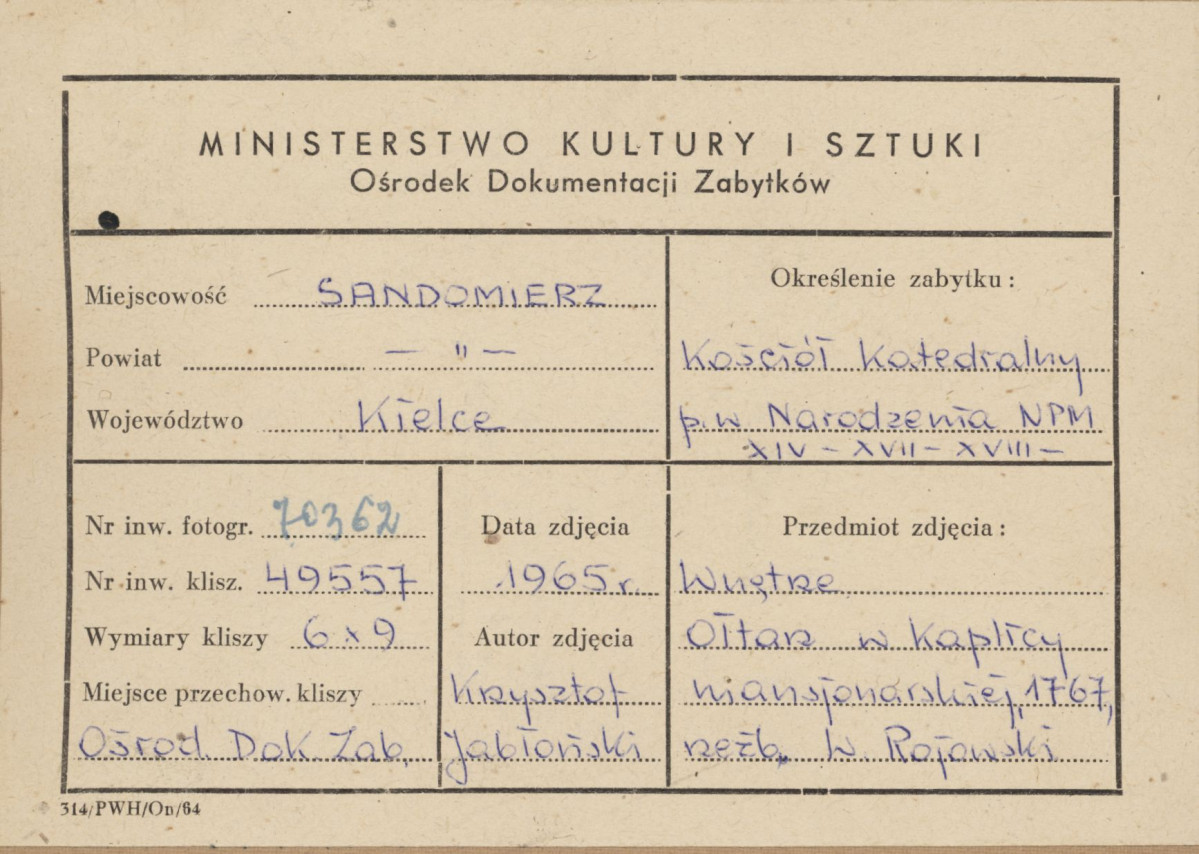 MINISTERSTWO KULTURY I SZTUKI
Ośrodek Dokumentacji Zabytków
Miejscowość SANDOMIERZ
Powiat — " —
Województwo Kielce
Określenie zabytku:
Kościół Katedralny
p.w. Narodzenia NPM
XIV – XVII – XVIII –
Nr inw. fotogr. 70362
Nr inw. klisz. 49557
Wymiary kliszy 6 x 9
Miejsce przechow. kliszy
Ośrod. Dok. Zab.
Data zdjęcia
1965 r.
Autor zdjęcia
Krzysztof
Jabłoński
Przedmiot zdjęcia:
Wnętrze
Ołtarz w Kaplicy
mansjonarskiej, 1767,
rzeźb. W. Rojowski
314/PWH/On/64